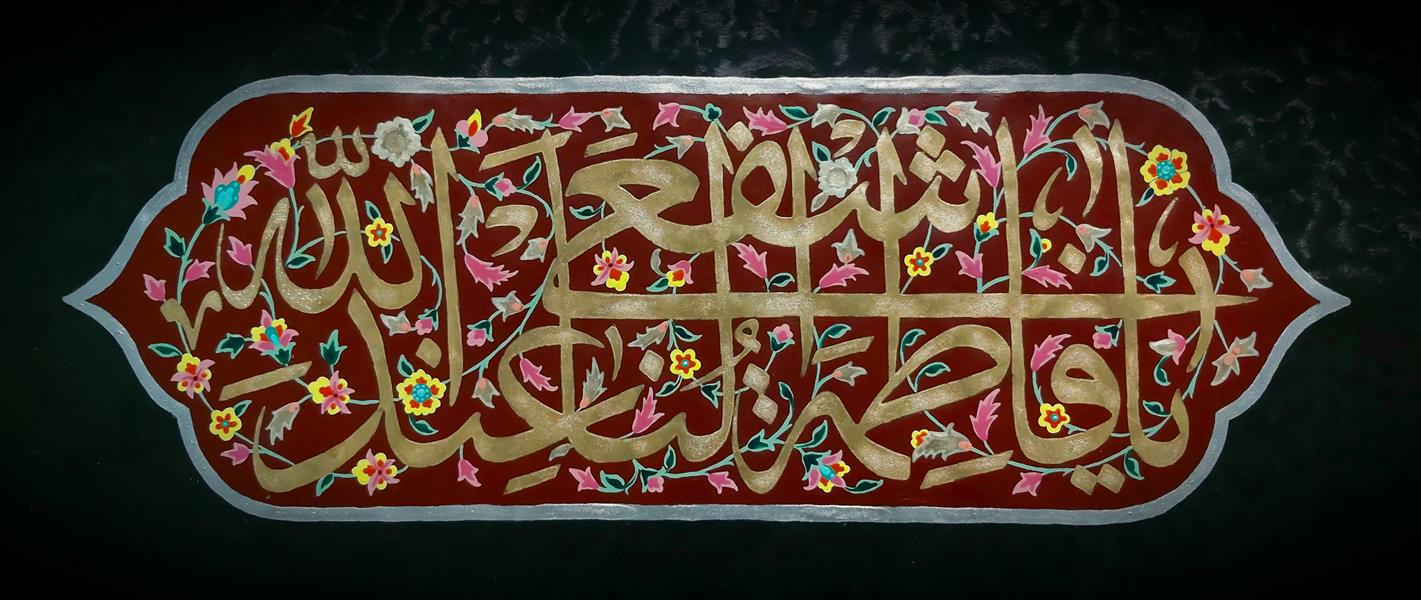 يا فاطمة اشفعي لنا عند الله